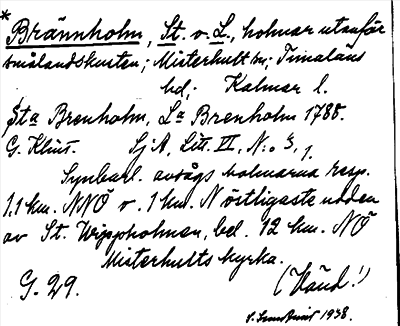 * Brännholm, St. o. L., holmar utanför
smålandskusten; Misterhult sn; Tunaläns
hd; Kalmar l.
Sta Brenholm, La Brenholm 1788.
G. Klint. SjA, Litt. II, N:o 3, 1.
Synbarl. avsågs holmarna resp.
1,1 km. NNÖ o. 1 km. N östligaste udden
av St. Vippholmen, bel. 12 km. NÖ
Misterhults kyrka.
G. 29. (Vänd!)
1938.